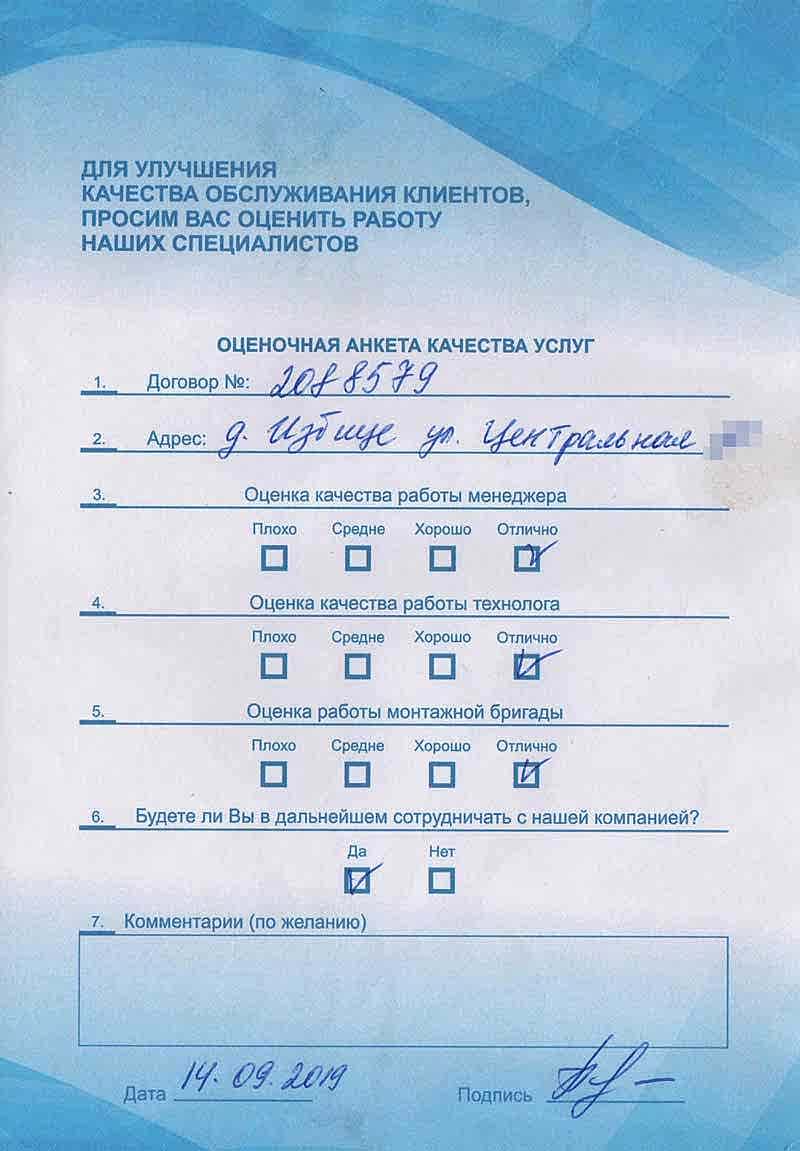 ДЛЯ УЛУЧШЕНИЯ
КАЧЕСТВА ОБСЛУЖИВАНИЯ КЛИЕНТОВ,
ПРОСИМ ВАС ОЦЕНИТЬ РАБОТУ
НАШИХ СПЕЦИАЛИСТОВ
ОЦЕНОЧНАЯ АНКЕТА КАЧЕСТВА УСЛУГ
1. Договор №: 2088579
2. Адрес: д. Избище ул. Центральная
3. Оценка качества работы менеджера
Плохо Средне Хорошо Отлично
4. Оценка качества работы технолога
Плохо Средне Хорошо Отлично
5. Оценка работы монтажной бригады
Плохо Средне Хорошо Отлично
6. Будете ли Вы в дальнейшем сотрудничать с нашей компанией?
Да Нет
7. Комментарии (по желанию)
Дата 14.09.2019 Подпись